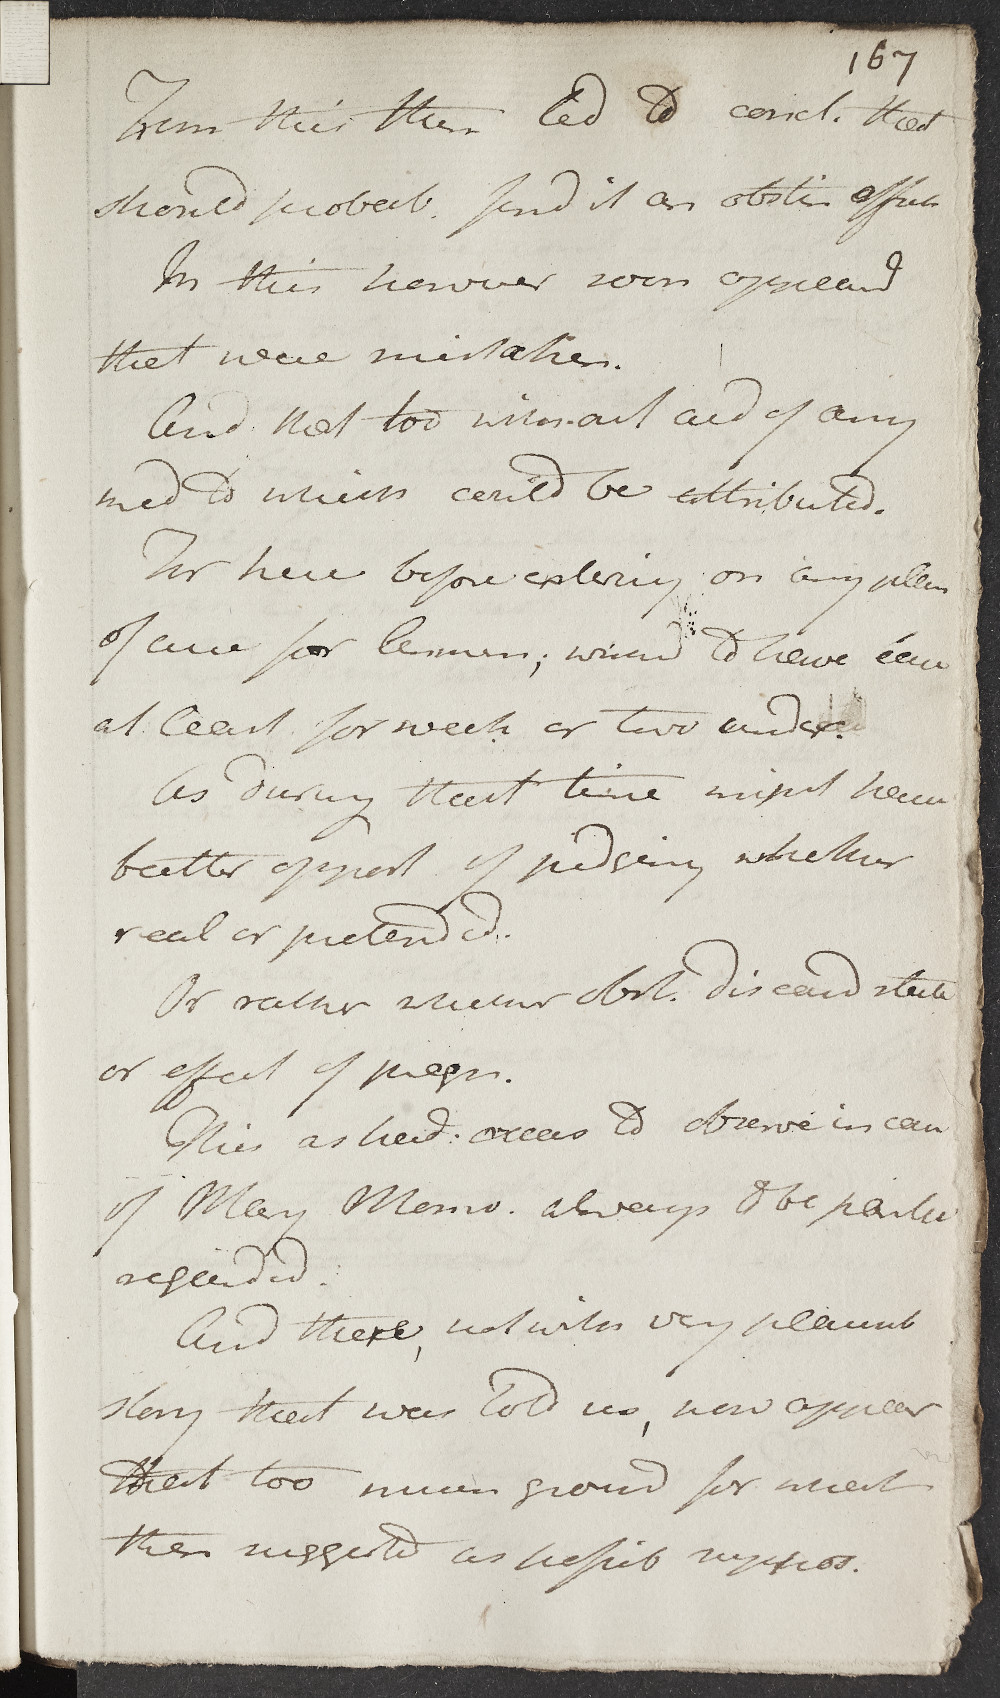 167
From this then led to concl. that
should probab. find it an obstin affec
In this however soon appeard
that were mistaken.
And that too without aid of any
med to which could be attributed.
For here before entering on any plan
of cure for Lemmen; wishd to have
at least for week or two under
As during that time might have
better opport. of judging whether
real or pretended.
Or rather whether obst. diseasd state
or effect of pregn.
This as had: occas to observe in case
of Mary Monro. always to be partic
regarded.
And there, notwith very plausib
story that was told us, now appear
that too much ground for what
then suggested as possib suppos.